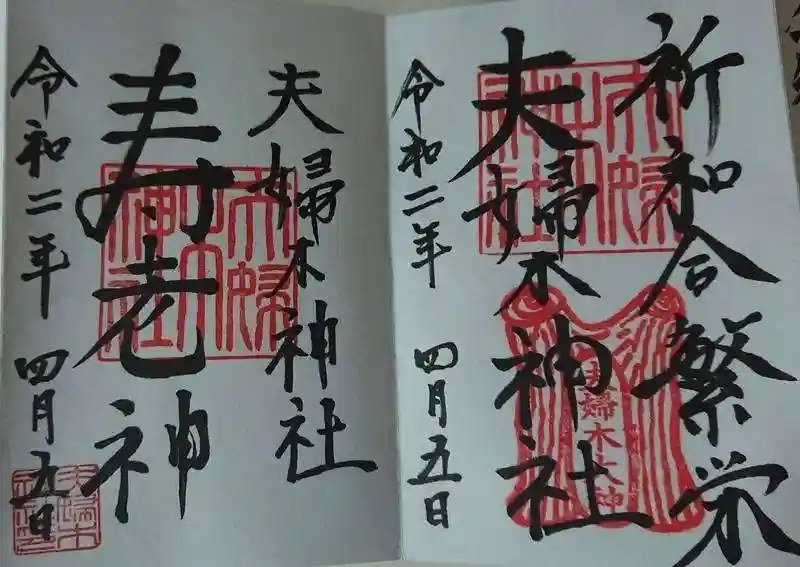 祈和合繁栄
夫婦木神社
令和二年 四月五日
夫婦木神社
夫婦木大神
夫婦木神社
寿老神
令和二年 四月五日
夫婦木神社